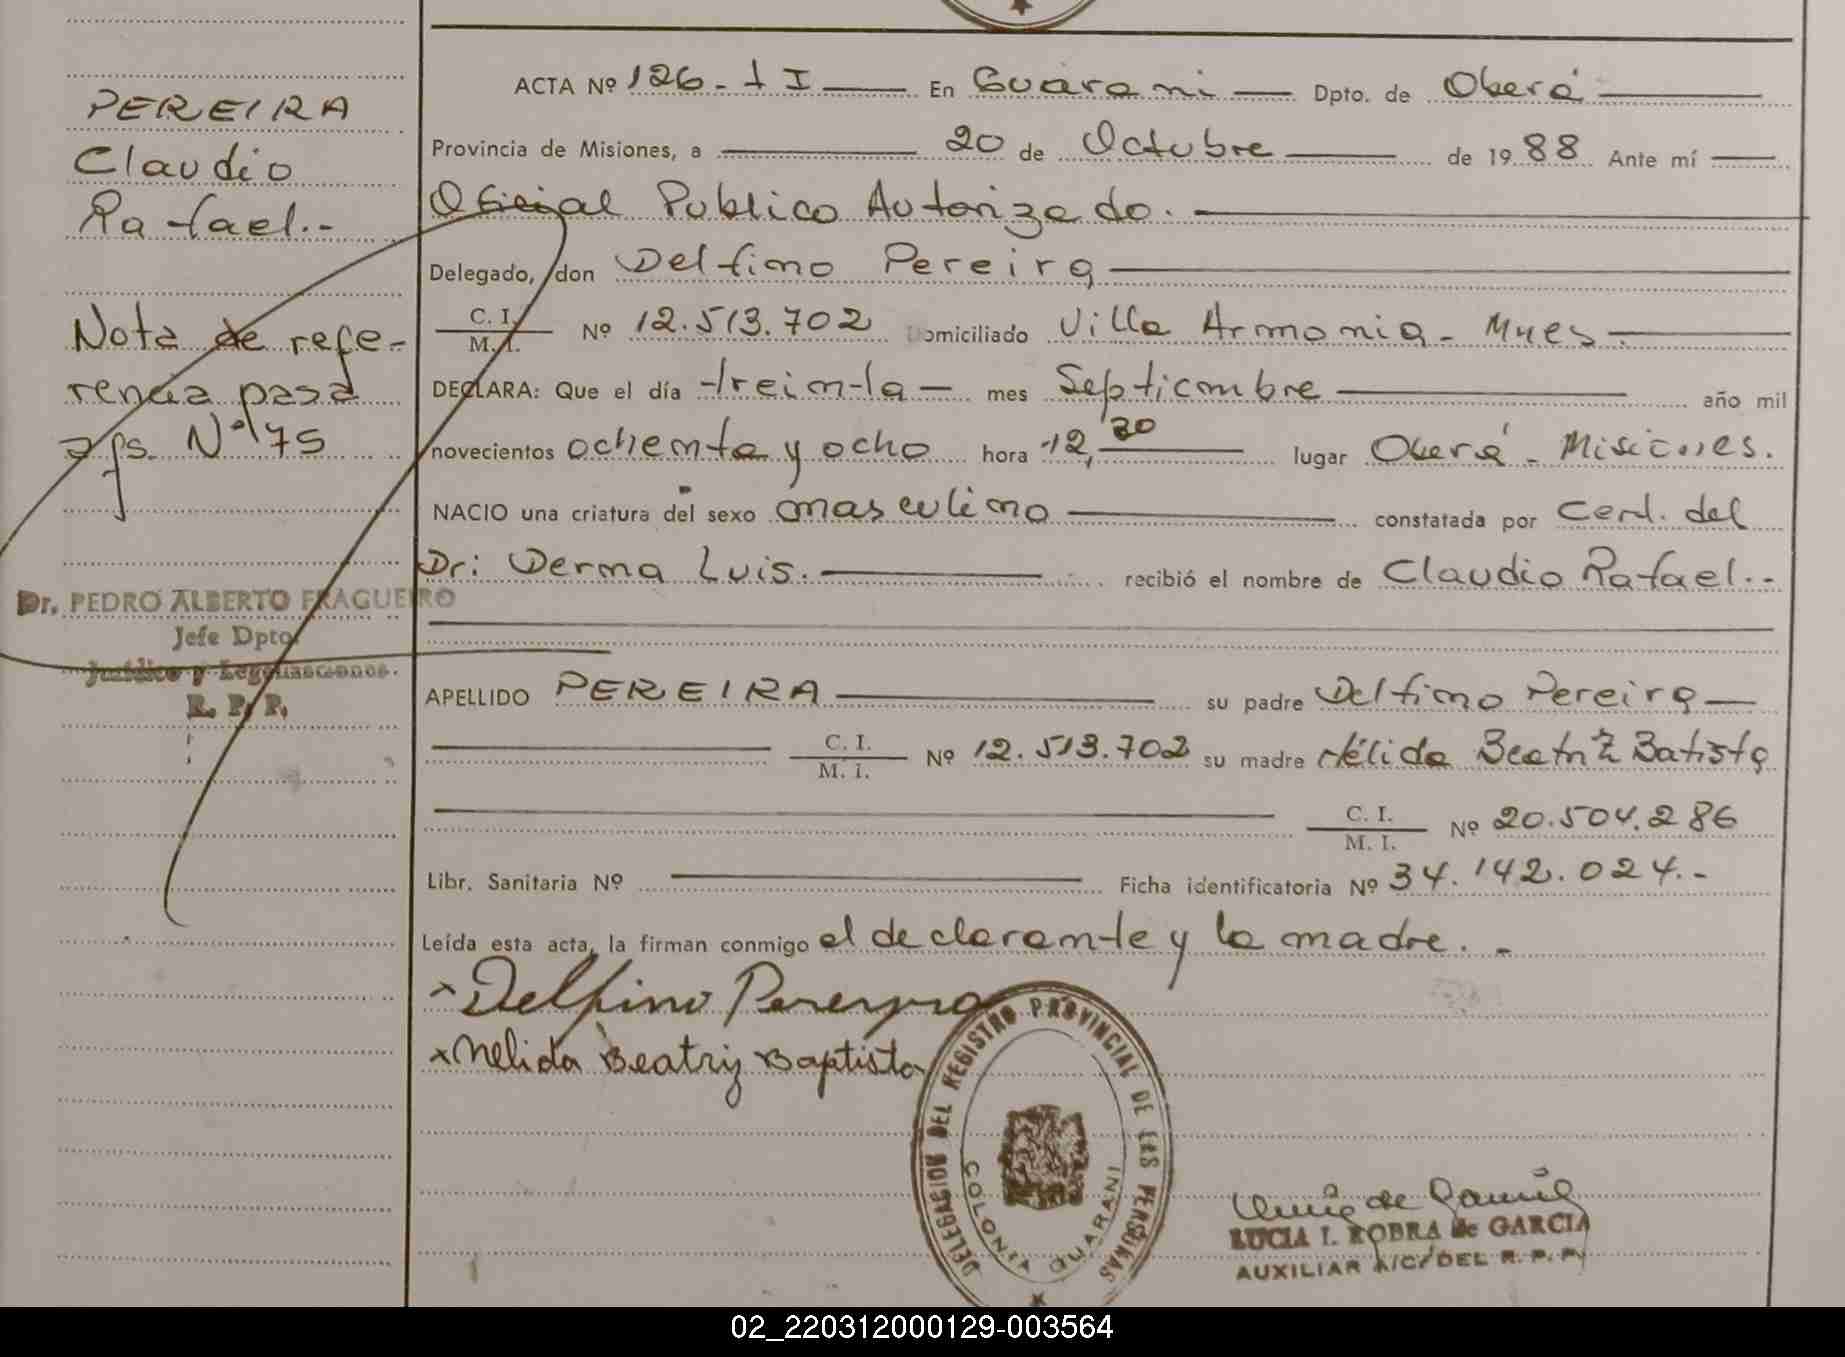 PEREIRA
Claudio
Rafael.-
Nota de refe-
rencia pasa
a fs. Nº 75
Dr. PEDRO ALBERTO FRAGUEIRO
Jefe Dpto.
Jurídico y Legalizaciones.
R. P. P.
ACTA Nº 126 - 1 I En Guarani Dpto. de Oberá
Provincia de Misiones, a 20 de Octubre de 1988 Ante mí
Oficial Publico Autorizado.
Delegado, don Delfino Pereira
C. I.
M. I. Nº 12.513.702 Domiciliado Villa Armonia - Mnes.
DECLARA: Que el día treinta mes Septiembre año mil
novecientos ochenta y ocho hora 12,30 lugar Oberá - Misiones.
NACIO una criatura del sexo masculino constatada por Cert. del
Dr: Derma Luis. recibió el nombre de Claudio Rafael.-
APELLIDO PEREIRA su padre Delfino Pereira
C. I.
M. I. Nº 12.513.702 su madre Nélida Beatriz Batista
C. I.
M. I. Nº 20.504.286
Libr. Sanitaria Nº Ficha identificatoria Nº 34.142.024.-
Leída esta acta, la firman conmigo el declarante y la madre.-
x Delfino Pereyra
x Nelida Beatriz Baptista
DELEGACION DEL REGISTRO PROVINCIAL DE LAS PERSONAS
COLONIA GUARANI
LUCIA I. ROBRA de GARCIA
AUXILIAR A/C/DEL R. P. P.
02_220312000129-003564